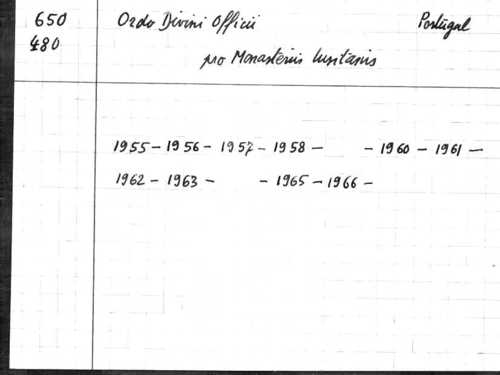 650 Ordo Divini Officii Portugal
480 pro Monasteriis lusitanis
1955 - 1956 - 1957 - 1958 - - 1960 - 1961 -
1962 - 1963 - - 1965 - 1966 -